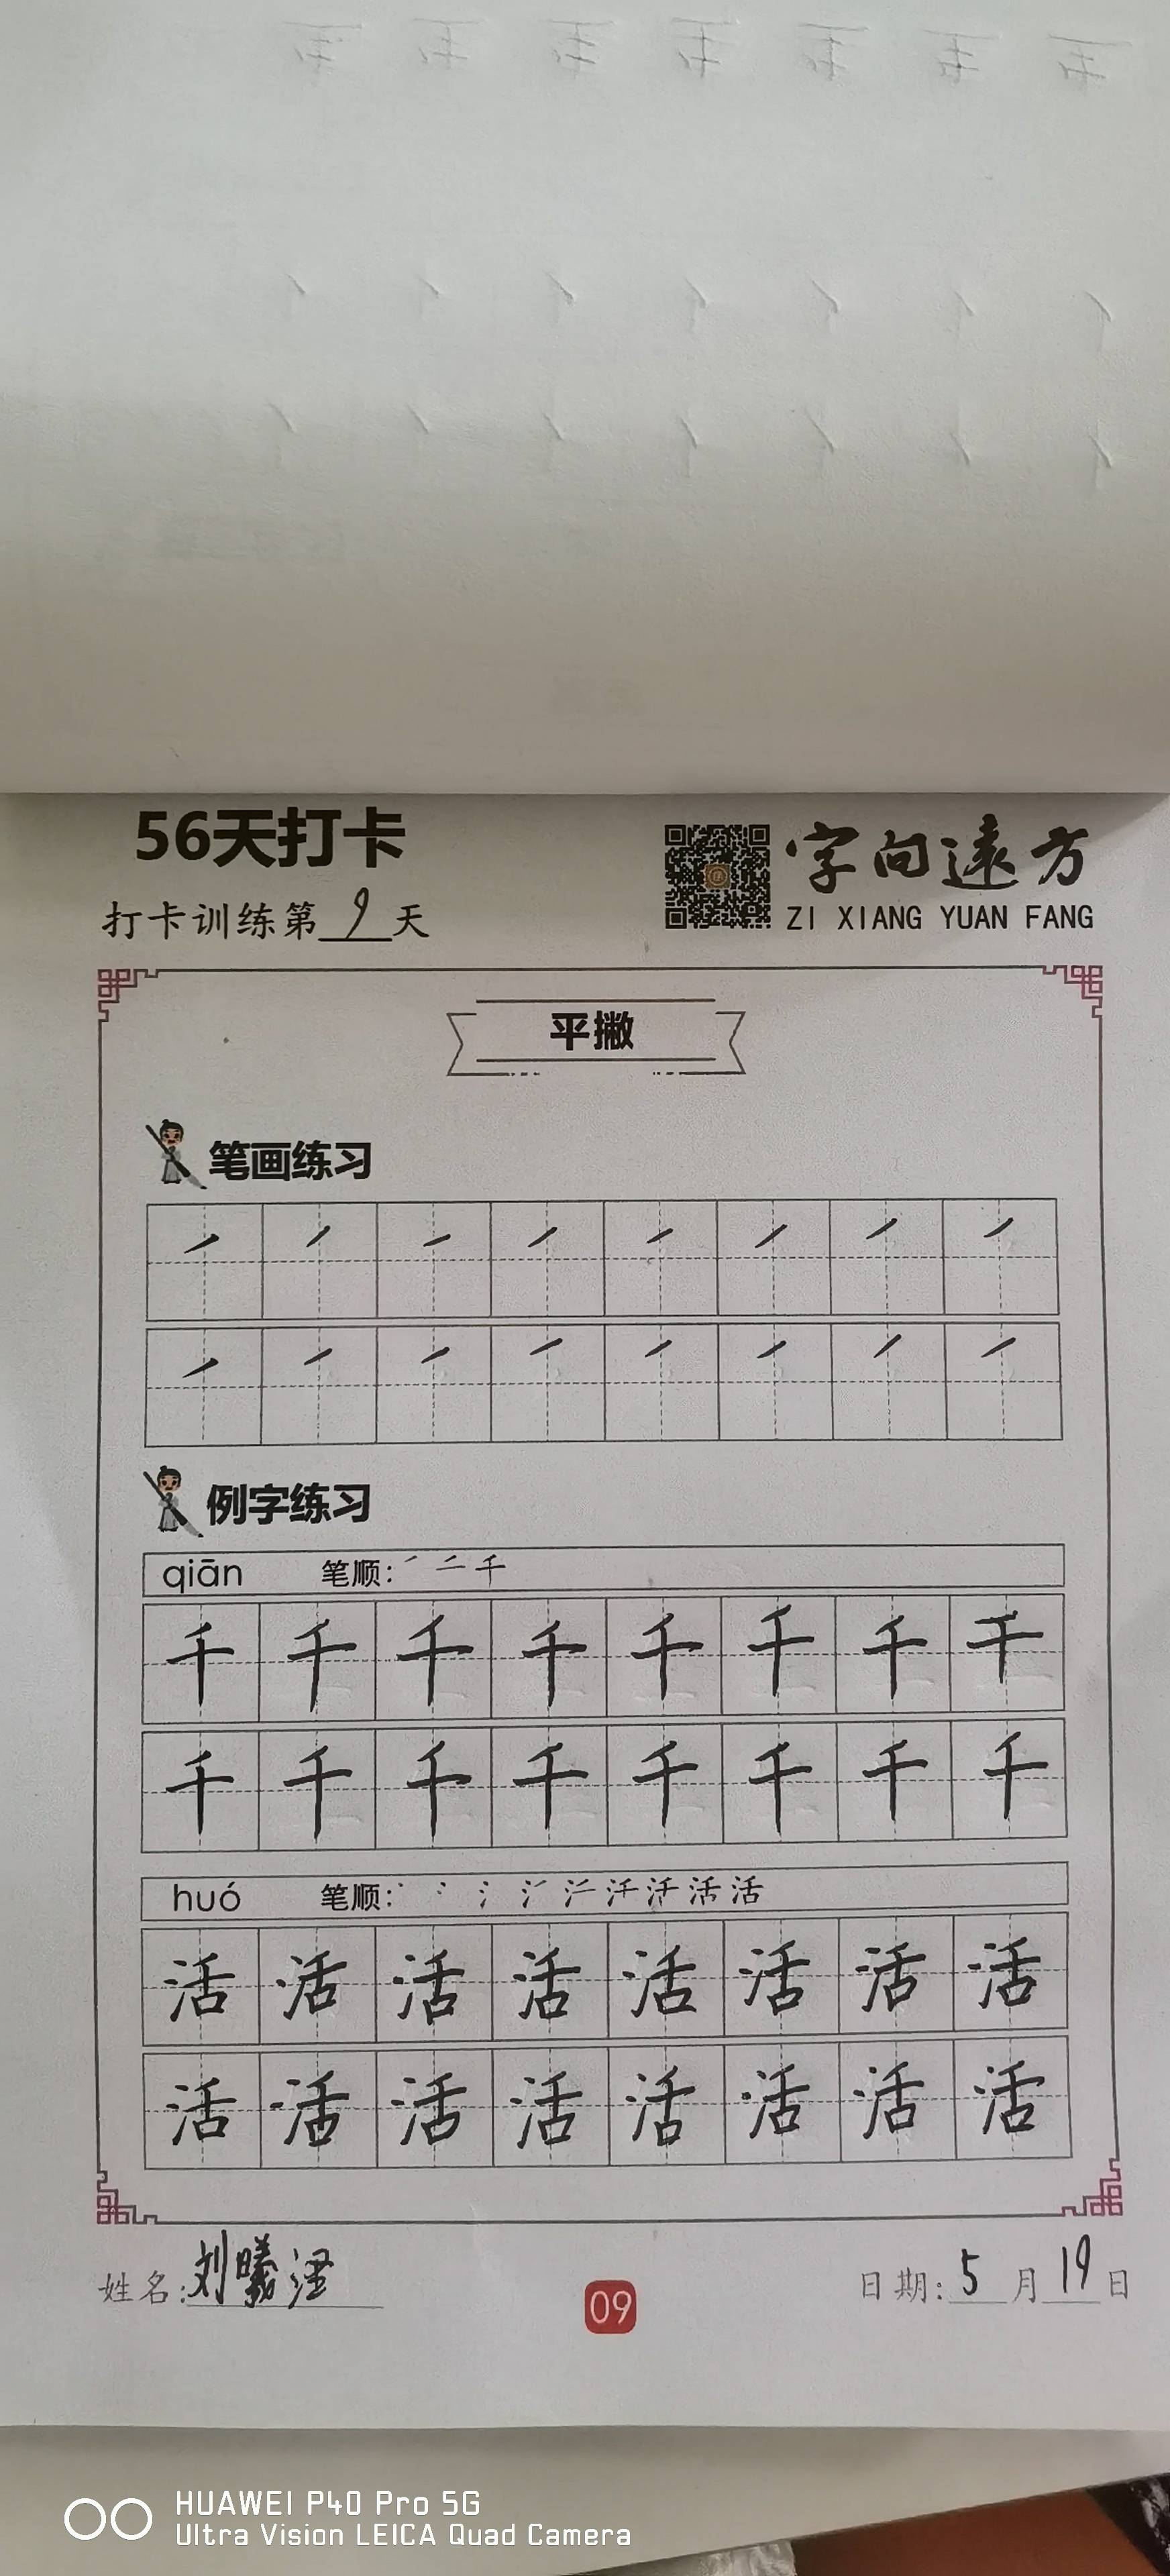 56天打卡
字向遠方
打卡训练第9天
ZI XIANG YUAN FANG
平撇
笔画练习
例字练习
qiān 笔顺:
千 千 千 千 千 千 千 千
千 千 千 千 千 千 千 千
huó 笔顺:
活 活 活 活 活 活 活 活
活 活 活 活 活 活 活 活
姓名:刘曦
09
日期:5月19日
HUAWEI P40 Pro 5G
Ultra Vision LEICA Quad Camera